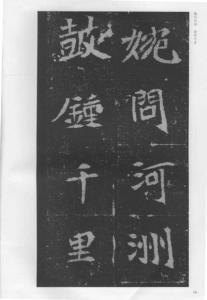 婉問河洲
鼓鍾千里